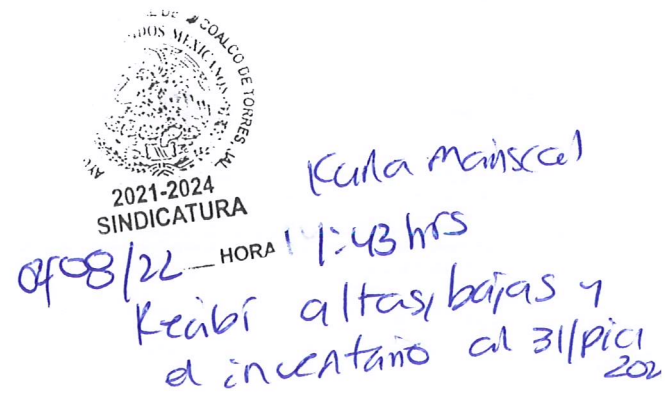 DE ZACOALCO DE TORRES, JAL
UNIDOS MEXICANOS
2021-2024
SINDICATURA
Karla Mariscal
08/22 HORA 11:43 hrs
Recibí altas, bajas y
el inventario al 31/Dic/
202